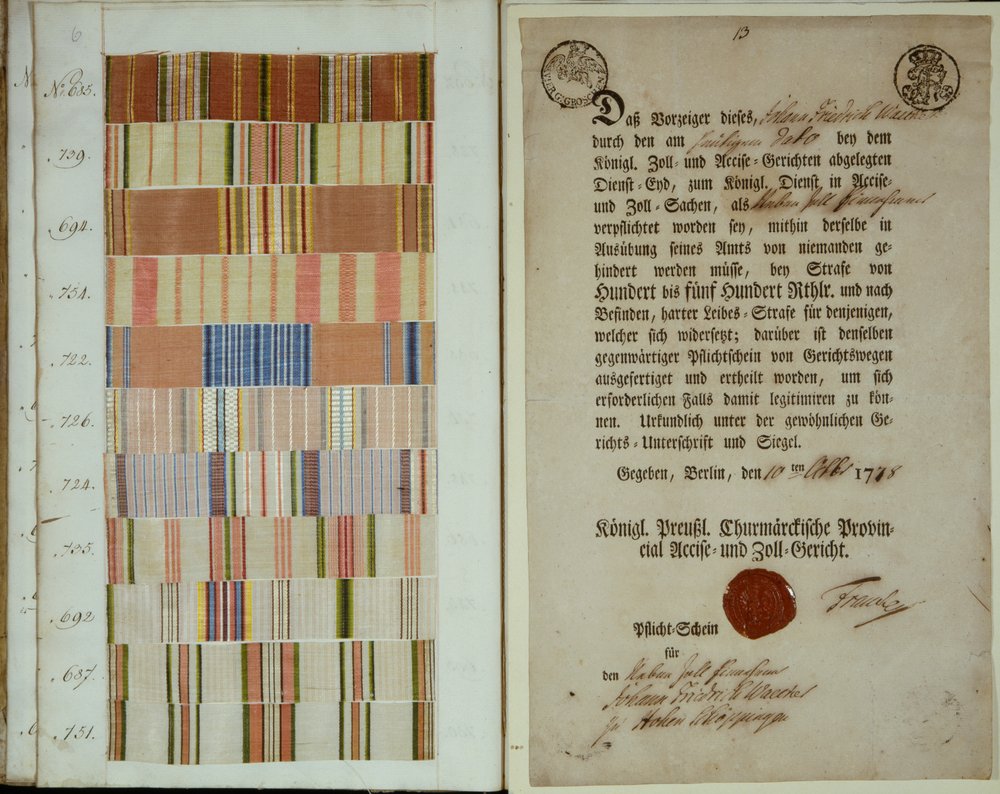 6
No. 685.
739.
694.
754.
722.
726.
724.
735.
692
687.
751.
13
Daß Vorzeiger dieses, Johann Friedrich
durch den am heutigen dato bey dem
Königl. Zoll- und Accise-Gerichten abgelegten
Dienst-Eyd, zum Königl. Dienst in Accise-
und Zoll-Sachen, als Neben Zoll Einnehmer
verpflichtet worden sey, mithin derselbe in
Ausübung seines Amts von niemanden ge-
hindert werden müsse, bey Strafe von
Hundert bis fünf Hundert Rthlr. und nach
Befinden, harter Leibes-Strafe für denjenigen,
welcher sich widersetzt; darüber ist denselben
gegenwärtiger Pflichtschein von Gerichtswegen
ausgefertiget und ertheilt worden, um sich
erforderlichen Falls damit legitimiren zu kön-
nen. Urkundlich unter der gewöhnlichen Ge-
richts-Unterschrift und Siegel.
Gegeben, Berlin, den 10 ten 1778
Königl. Preußl. Churmärckische Provin-
cial Accise- und Zoll-Gericht.
Pflicht-Schein
für
den Neben Zoll Einnehmer
Johann Friedrich
zu Hohen